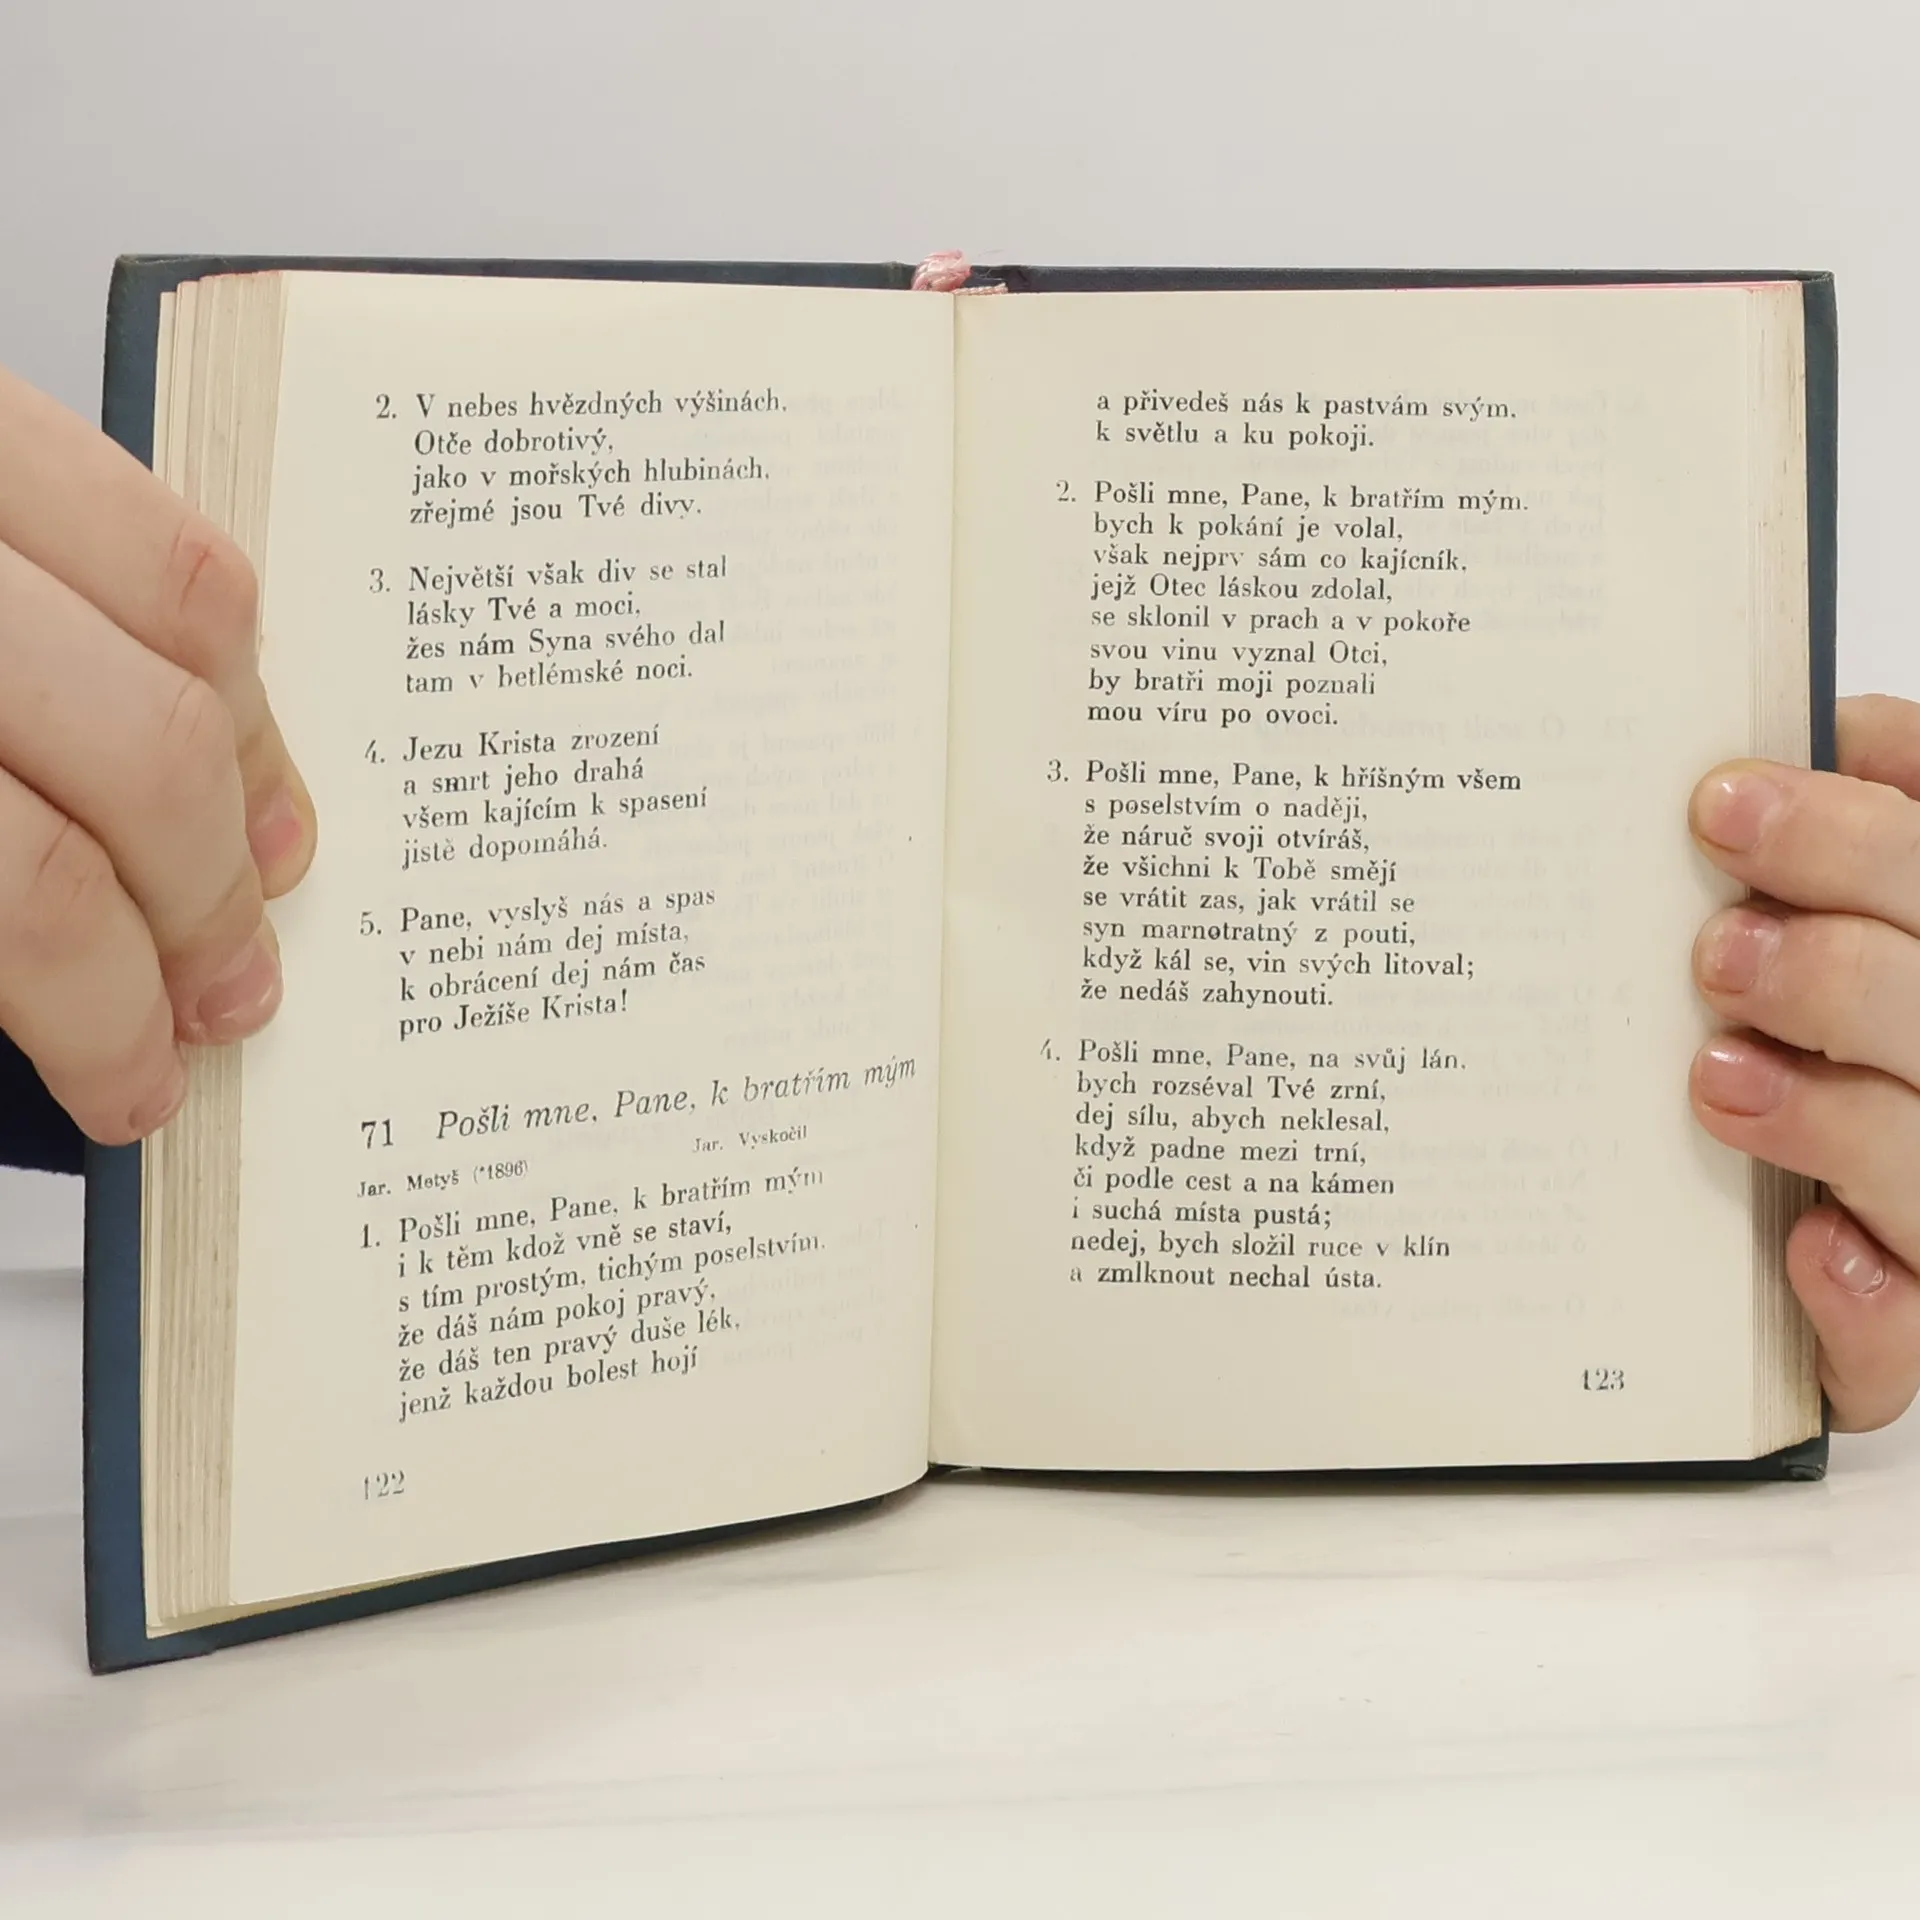 2. V nebes hvězdných výšinách,
Otče dobrotivý,
jako v mořských hlubinách,
zřejmé jsou Tvé divy.
3. Největší však div se stal
lásky Tvé a moci,
žes nám Syna svého dal
tam v betlémské noci.
4. Jezu Krista zrození
a smrt jeho drahá
všem kajícím k spasení
jistě dopomáhá.
5. Pane, vyslyš nás a spas
v nebi nám dej místa,
k obrácení dej nám čas
pro Ježíše Krista!
71 Pošli mne, Pane, k bratřím mým
Jar. Metyš (*1896) Jar. Vyskočil
1. Pošli mne, Pane, k bratřím mým
i k těm kdož vně se staví,
s tím prostým, tichým poselstvím,
že dáš nám pokoj pravý,
že dáš ten pravý duše lék,
jenž každou bolest hojí
122
a přivedeš nás k pastvám svým,
k světlu a ku pokoji.
2. Pošli mne, Pane, k bratřím mým,
bych k pokání je volal,
však nejprv sám co kajícník,
jejž Otec láskou zdolal,
se sklonil v prach a v pokoře
svou vinu vyznal Otci,
by bratři moji poznali
mou víru po ovoci.
3. Pošli mne, Pane, k hříšným všem
s poselstvím o naději,
že náruč svoji otvíráš,
že všichni k Tobě smějí
se vrátit zas, jak vrátil se
syn marnotratný z pouti,
když kál se, vin svých litoval;
že nedáš zahynouti.
4. Pošli mne, Pane, na svůj lán,
bych rozséval Tvé zrní,
dej sílu, abych neklesal,
když padne mezi trní,
či podle cest a na kámen
i suchá místa pustá;
nedej, bych složil ruce v klín
a zmlknout nechal ústa.
123